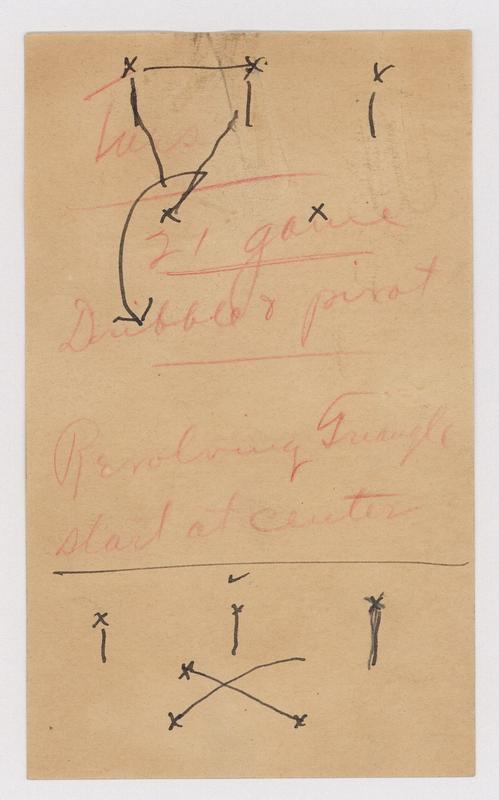 Tues
21 game
Dribble & pivot
Revolving Triangle
start at center